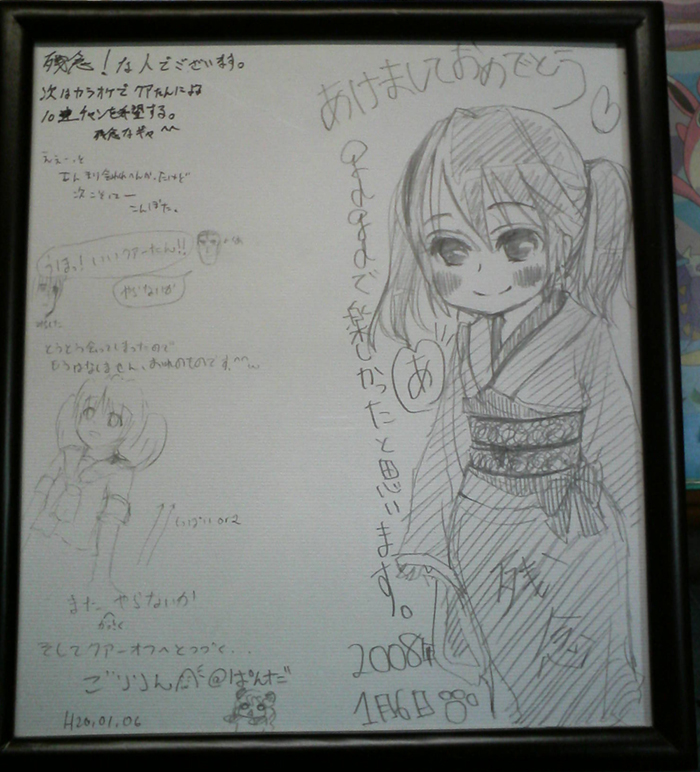 残念！な人でございます。
次はカラオケで クアたんによる
10連チャンを希望する。
残念な
えぇーっと
次こそはー
こんぼた。
うほっ！いいクアーたん!!
やらないか
とうとう会ってしまったので
もうはなしません、おれのものです^^
いっぱいorz
また やらないか
そしてクアーオフへとつづく...
ごりりん @ぱんだ
H20.01.06
あけましておめでとう
で楽しかったと思います。
あ
残念
2008年
1月6日